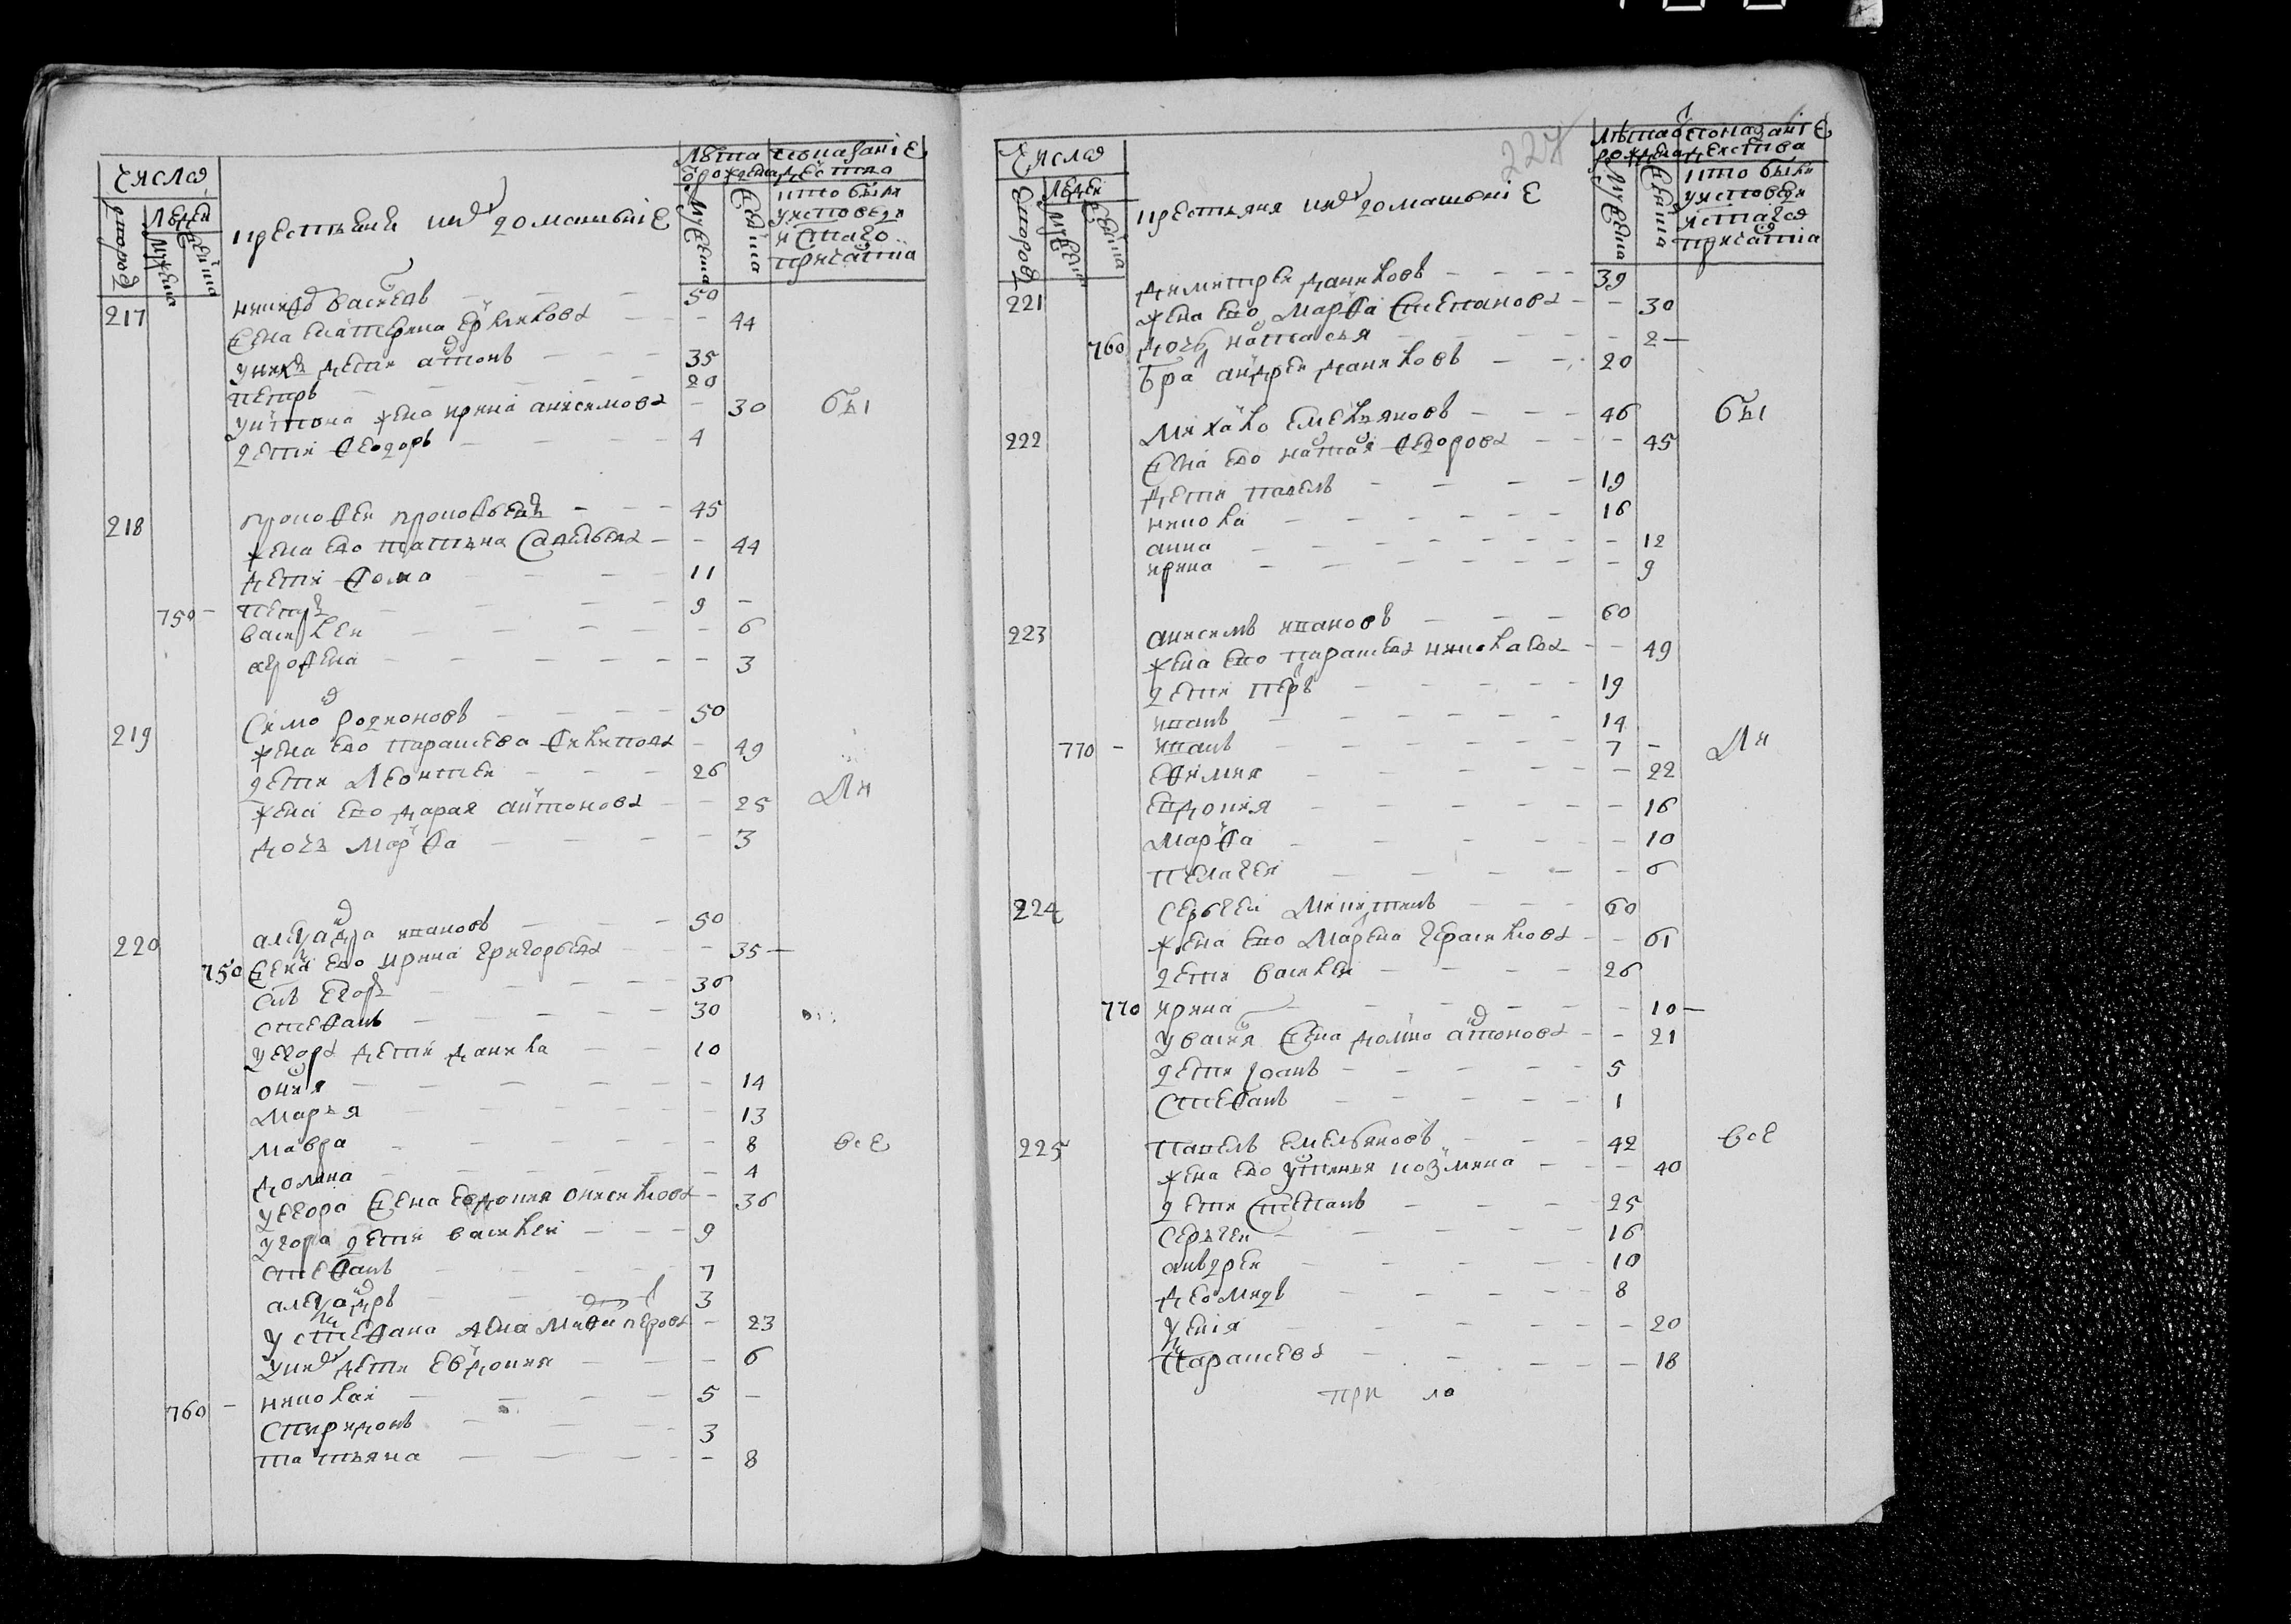 числа
дворов
людей
мужеска
женска
крестьяня ихъ домашьніе
лѣта от рождения
мужеска
женска
показаніе действа
кто были у исповеди и святаго причастия
217 никифъ васильевъ 50
жена катерина ермилова 44
у них дети антонъ 35
петръ 20
у антона жена ирина анисимова 30 бы
дети феодоръ 4
218 прокофеи прокофьевъ 45
жена ево татьяна савельева 44
дети фома 11
750 петръ 9
васи леи 6
агрофена 3
219 Симо родионовъ 50
жена ево парасковя филипова 49
дети Леонтеи 26
жена ево дарая антонова 25 ли
дочь марфа 3
220 александра ивановъ 50
750 жена ево ирина григорьева 35
сынъ егоръ 36
стефанъ 30
у егора дети данила 10
онися 14
марья 13
мавра 8 все
домна 4
у егора жена евдокия онисимова 36
у егора дети василеи 9
стефанъ 7
александръ 3
у стефана жена марфа петрова 23
у них дети евдокия 6
760 николаи 5
спиридонъ 3
татьяна 8
227
числа
дворов
людей
мужеска
женска
крестьяня ихъ домашьніе
лѣта от рождения
мужеска
женска
показаніе действа
кто были у исповеди и святаго причастия
221 димитреи даниловъ 39
жена ево марфа степанова 30
760 дочь настасья 2
брат андреи даниловъ 20
222 михаило емельяновъ 46 бы
жена ево настася федорова 45
дети павелъ 19
никола 16
анна 12
ирина 9
223 анисимъ ивановъ 60
жена ево парасковя николаева 49
дети петръ 19
иванъ 14
770 иванъ 7 ли
ефимия 22
евдокия 16
марфа 10
пелагея 6
224 сергеи микитинъ 60
жена ево марена герасимова 61
дети василеи 26
770 ирина 10
у василя жена домна антонова 21
дети иоанъ 5
стефанъ 1
225 павелъ емельяновъ 42 все
жена ево устинья козмина 40
дети степанъ 25
сергеи 16
анъдреи 10
деомидъ 8
ксенія 20
парасковя 18
при ло